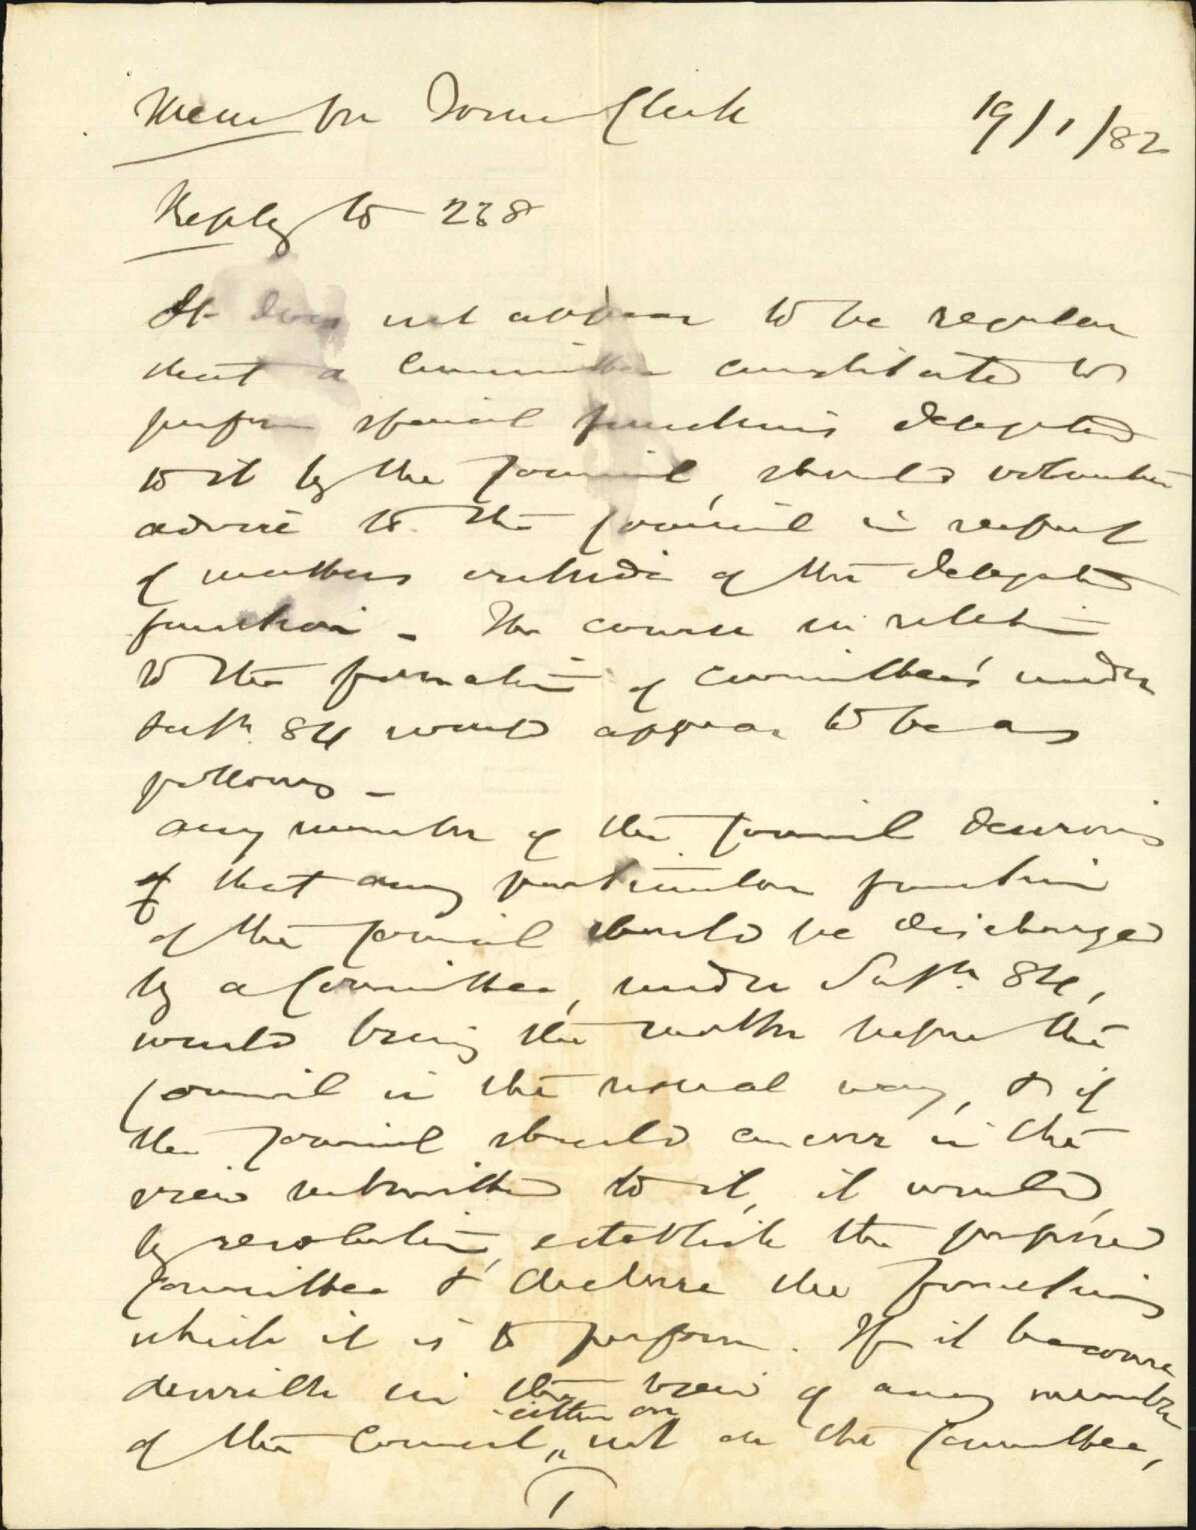 Memo for Town Clerk 19/1/82
Reply to 238
It does not appear to be regular
that a Committee constituted to
perform special functions delegated
to it by the Council, should volunteer
advice to the Council in respect
of matters outside of the delegated
function - The course in relation
to the formation of Committees under
84 would appear to be as
follows -
Any member of the Council desirous
that any particular function
of the Council should be discharged
by a Committee, under 84,
would bring the matter before the
Council in the usual way, & if
the Council should concur in the
view submitted to it, it would,
by resolution, establish the proposed
Committee & declare the functions
which it is to perform. If it become
desirable in the view of any member
either on
of the Council, not on the Committee,
1